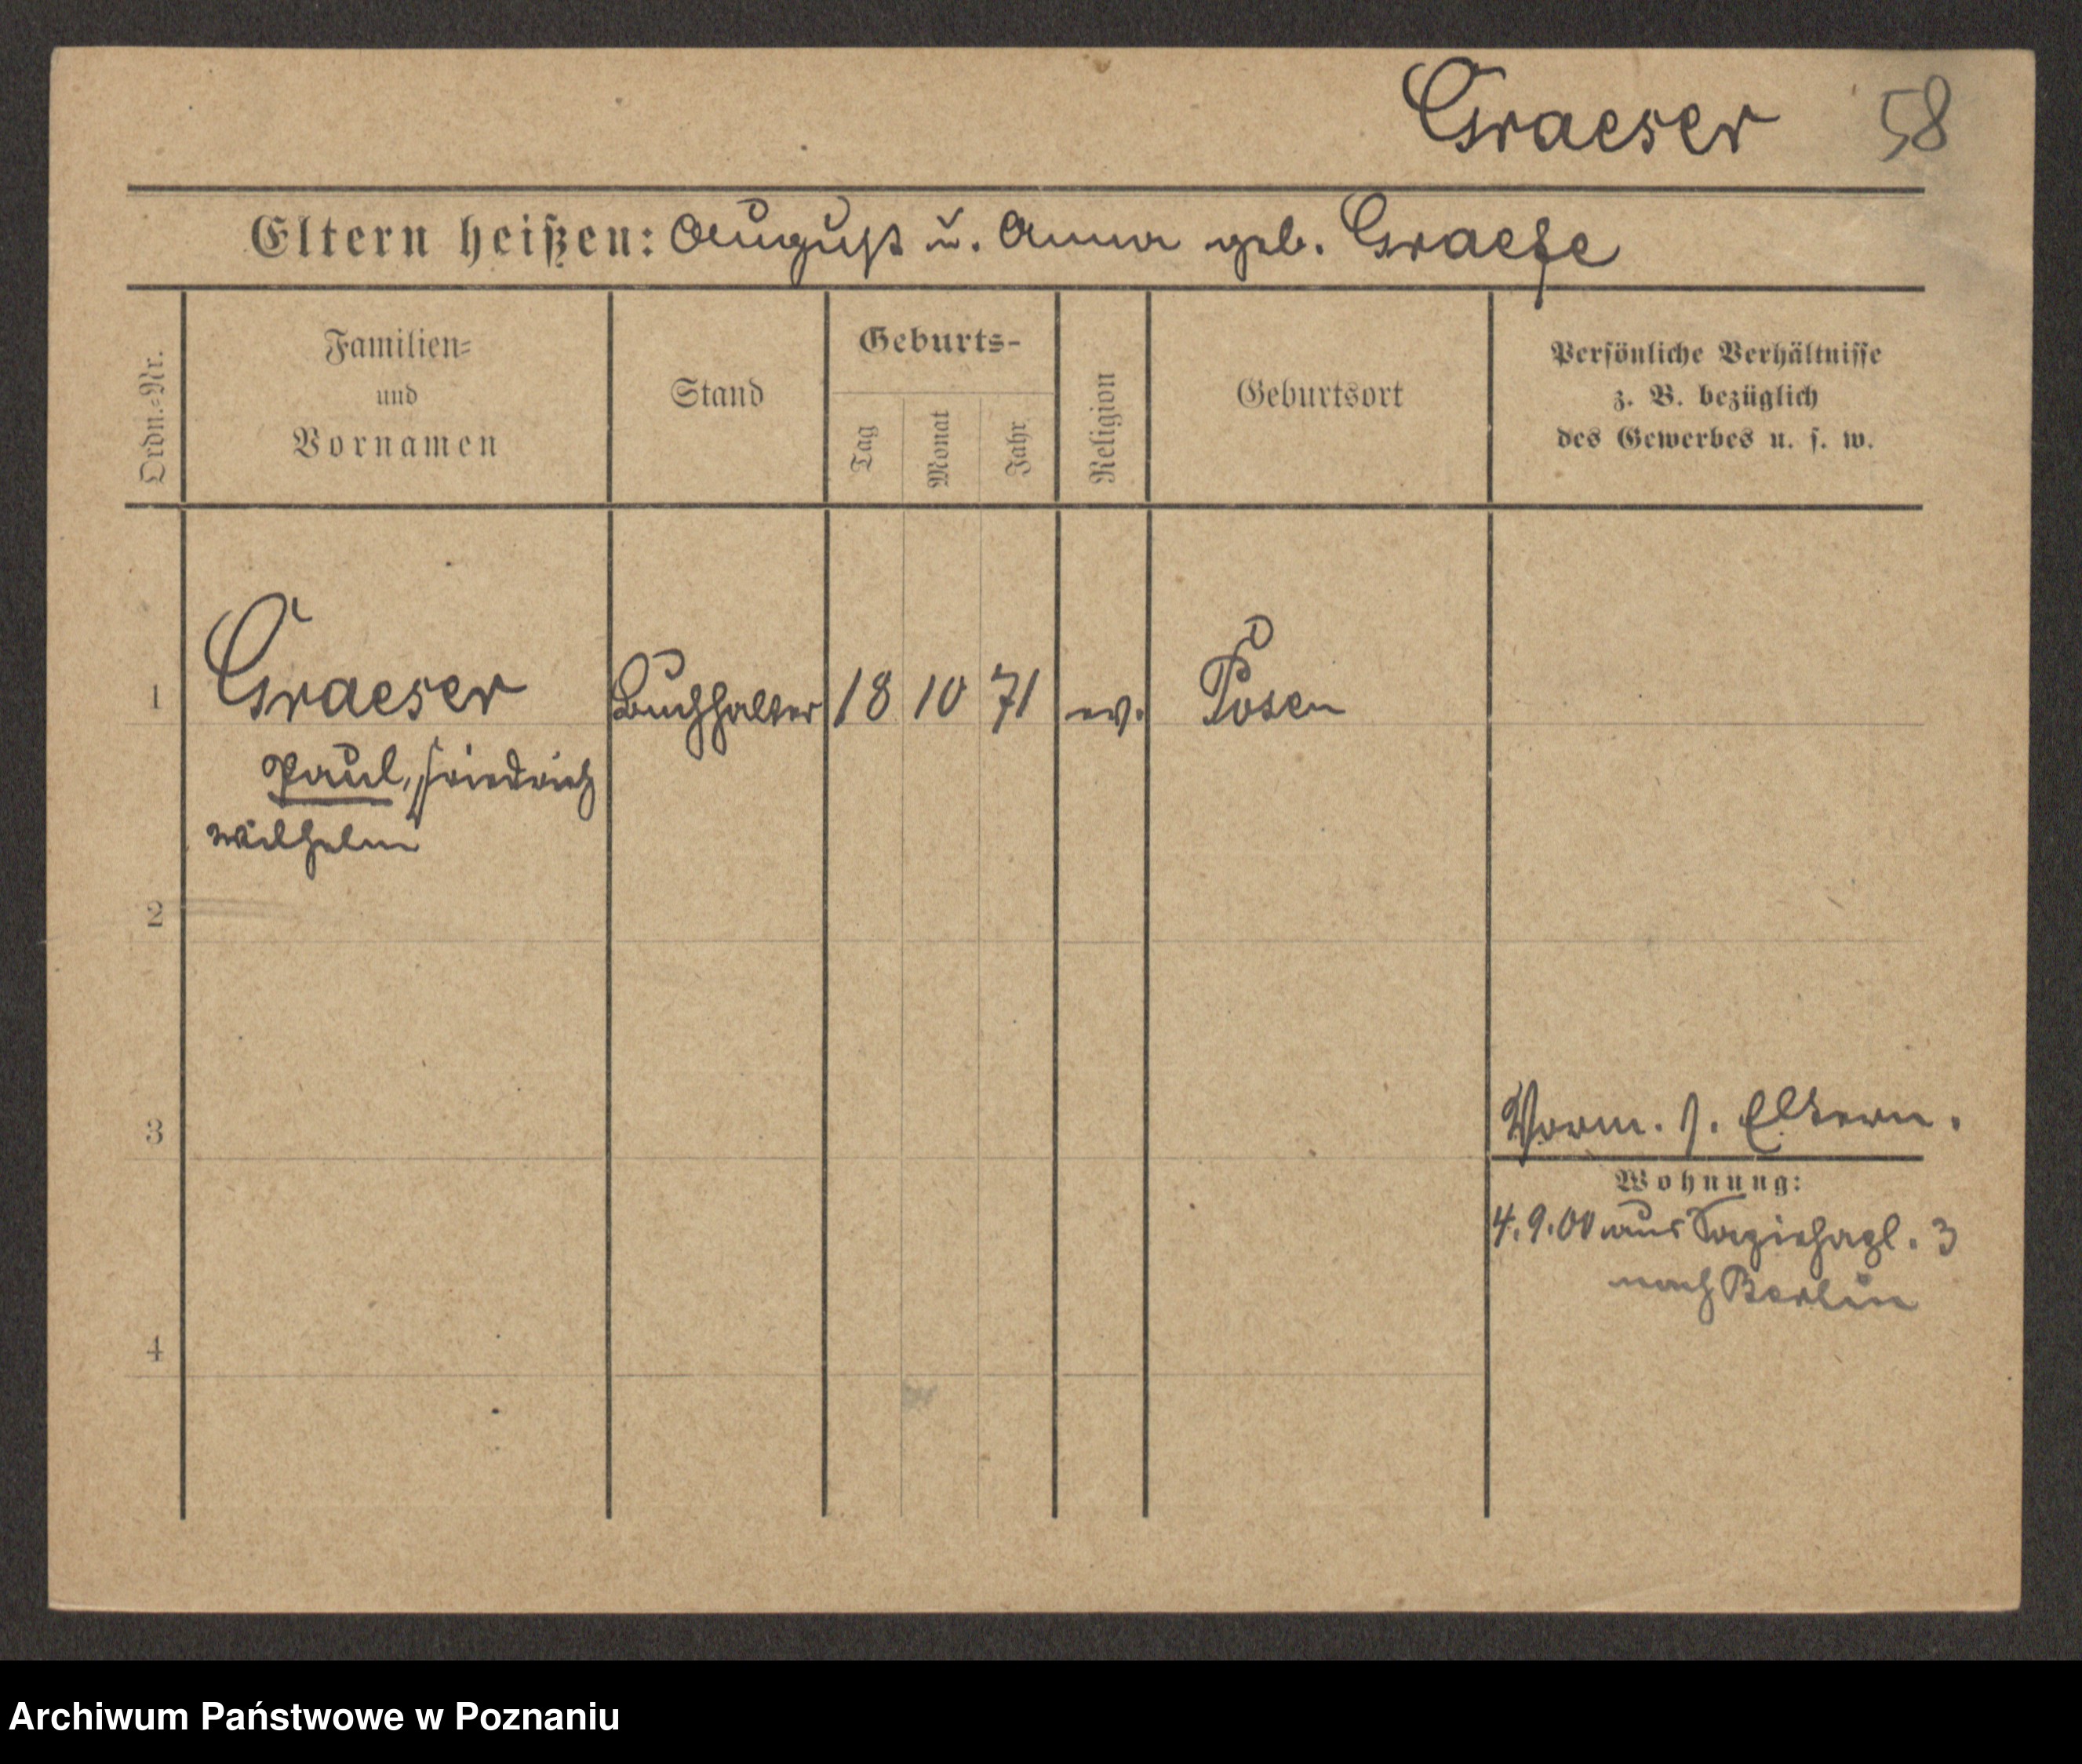 Graeser 58
Eltern heißen: August u. Anna geb. Graefe
Ordn.-Nr.
Familien-
und
Vornamen
Stand
Geburts-
Tag
Monat
Jahr
Religion
Geburtsort
Persönliche Verhältnisse
z. B. bezüglich
des Gewerbes u. s. w.
1 Graeser Buchhalter 18 10 71 ev. Posen
Paul, Friedrich
Wilhelm
2
3
Verm. s. Eltern.
Wohnung:
4.9.00 aus 3
nach Berlin
4
Archiwum Państwowe w Poznaniu